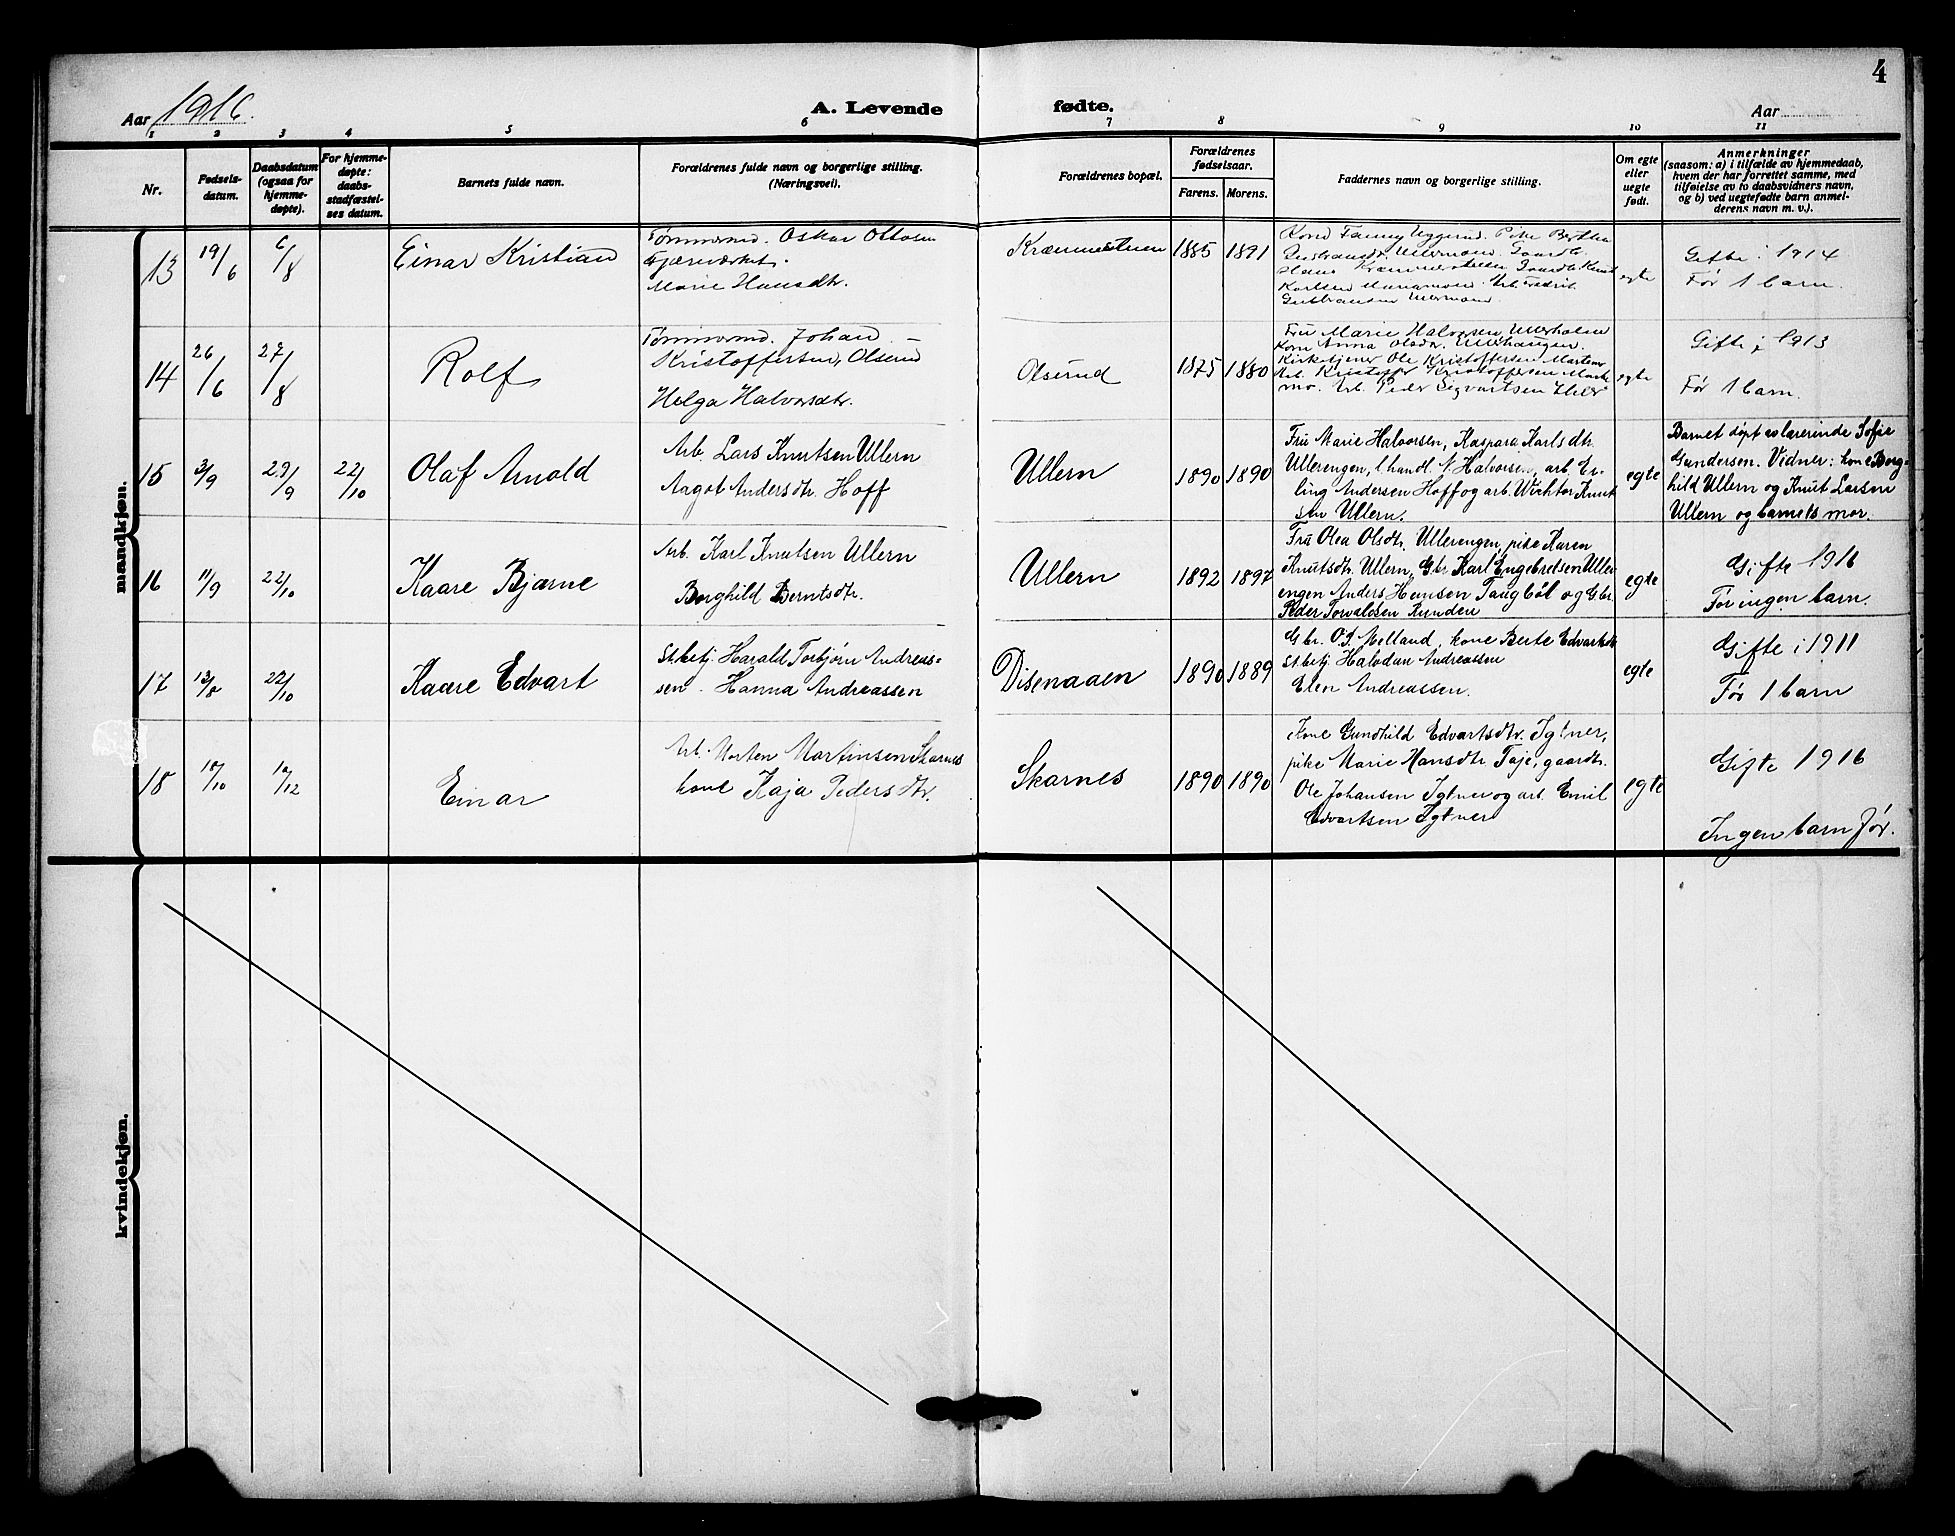 4
Aar 1916.
A. Levende
fødte.
Aar
1 2 3 4 5 6 7 8 9 10 11
Nr.
Fødsels-
datum.
Daabsdatum
(ogsaa for
hjemme-
døpte).
For hjemme-
døpte:
daabs-
stadfæstel-
ses datum.
Barnets fulde navn.
Forældrenes fulde navn og borgerlige stilling.
(Næringsvei).
Forældrenes bopæl.
Forældrenes
fødselsaar.
Farens. Morens.
Faddernes navn og borgerlige stilling.
Om egte
eller
uegte
født.
Anmerkninger
(saasom: a) i tilfælde av hjemmedaab,
hvem der har forrettet samme, med
tilføielse av to daabsvidners navn,
og b) ved uegtefødte barn anmel-
derens navn m. v.).
mandkjøn.
13
19/6
6/8
Einar Kristian
Tømmermd. Oskar Ottosen
Marie Hansdtr.
1885 1891
Kone Fanny Uggerud. Pike Bertha
egte
Gifte i 1914
Før 1 barn.
14
26/6
27/8
Rolf
Tømmermd. Johan
Kristoffersen, Olserud
Helga Halvorsdtr.
Olserud
1875 1880
Fru Marie Halvorsen, Ullerholen
Kone Anna Olsdr. Ullerhaugen.
Kirketjener Ole Kristoffersen
Arb. Kristoffer Kristoffersen
mo. Arb. Peder Sigvartsen
egte
Gifte i 1913
Før 1 barn.
15
3/9
29/9
22/10
Olaf Arnold
Arb. Lars Knutsen Ullern
Aagot Andersdtr. Hoff
Ullern
1890 1890
Fru Marie Halvorsen, Kaspara Karlsdtr.
Ullerengen, l. handl. N. Halvorsen, arb. Er-
ling Andersen Hoff og arb. Wichtor Knut
sen Ullern.
egte
Barnet døpt av lærerinde Sofie
Gundersen. Vidner: kone Borg-
hild Ullern og Knut Larsen
Ullern og barnets mor.
16
11/9
22/10
Kaare Bjarne
Arb. Karl Knutsen Ullern
Borghild Berntsdtr.
Ullern
1892 1897
Fru Olea Olsdtr. Ullerengen, pike Karen
Knutsdtr. Ullern, Gbr. Karl Engebretsen Uller
engen Anders Hansen Taugbøl og Gbr.
Peder Torvaldsen Runden
egte
Gifte 1916
Før ingen barn.
17
13/8
22/10
Kaare Edvart
St.betj. Harald Torbjørn Andreas-
sen. Hanna Andreassen
Disenaaen
1890 1889
Gbr. O. J. Melland, kone Berte Edvartsdtr
St.betj. Halvdan Andreassen
Elen Andreassen.
egte
Gifte i 1911
Før 1 barn
18
10/10
10/12
Einar
Arb. Morten Martinsen Skarnes
kone Kaja Pedersdtr.
Skarnes
1890 1890
Kone Gundhild Edvartsdtr. Igtner,
pike Marie Hansdtr. Taje, gaardbr.
Ole Johansen Igtner og arb. Emil
Edvartsen Igtner
egte
Gifte 1916
Ingen barn før.
kvindekjøn.